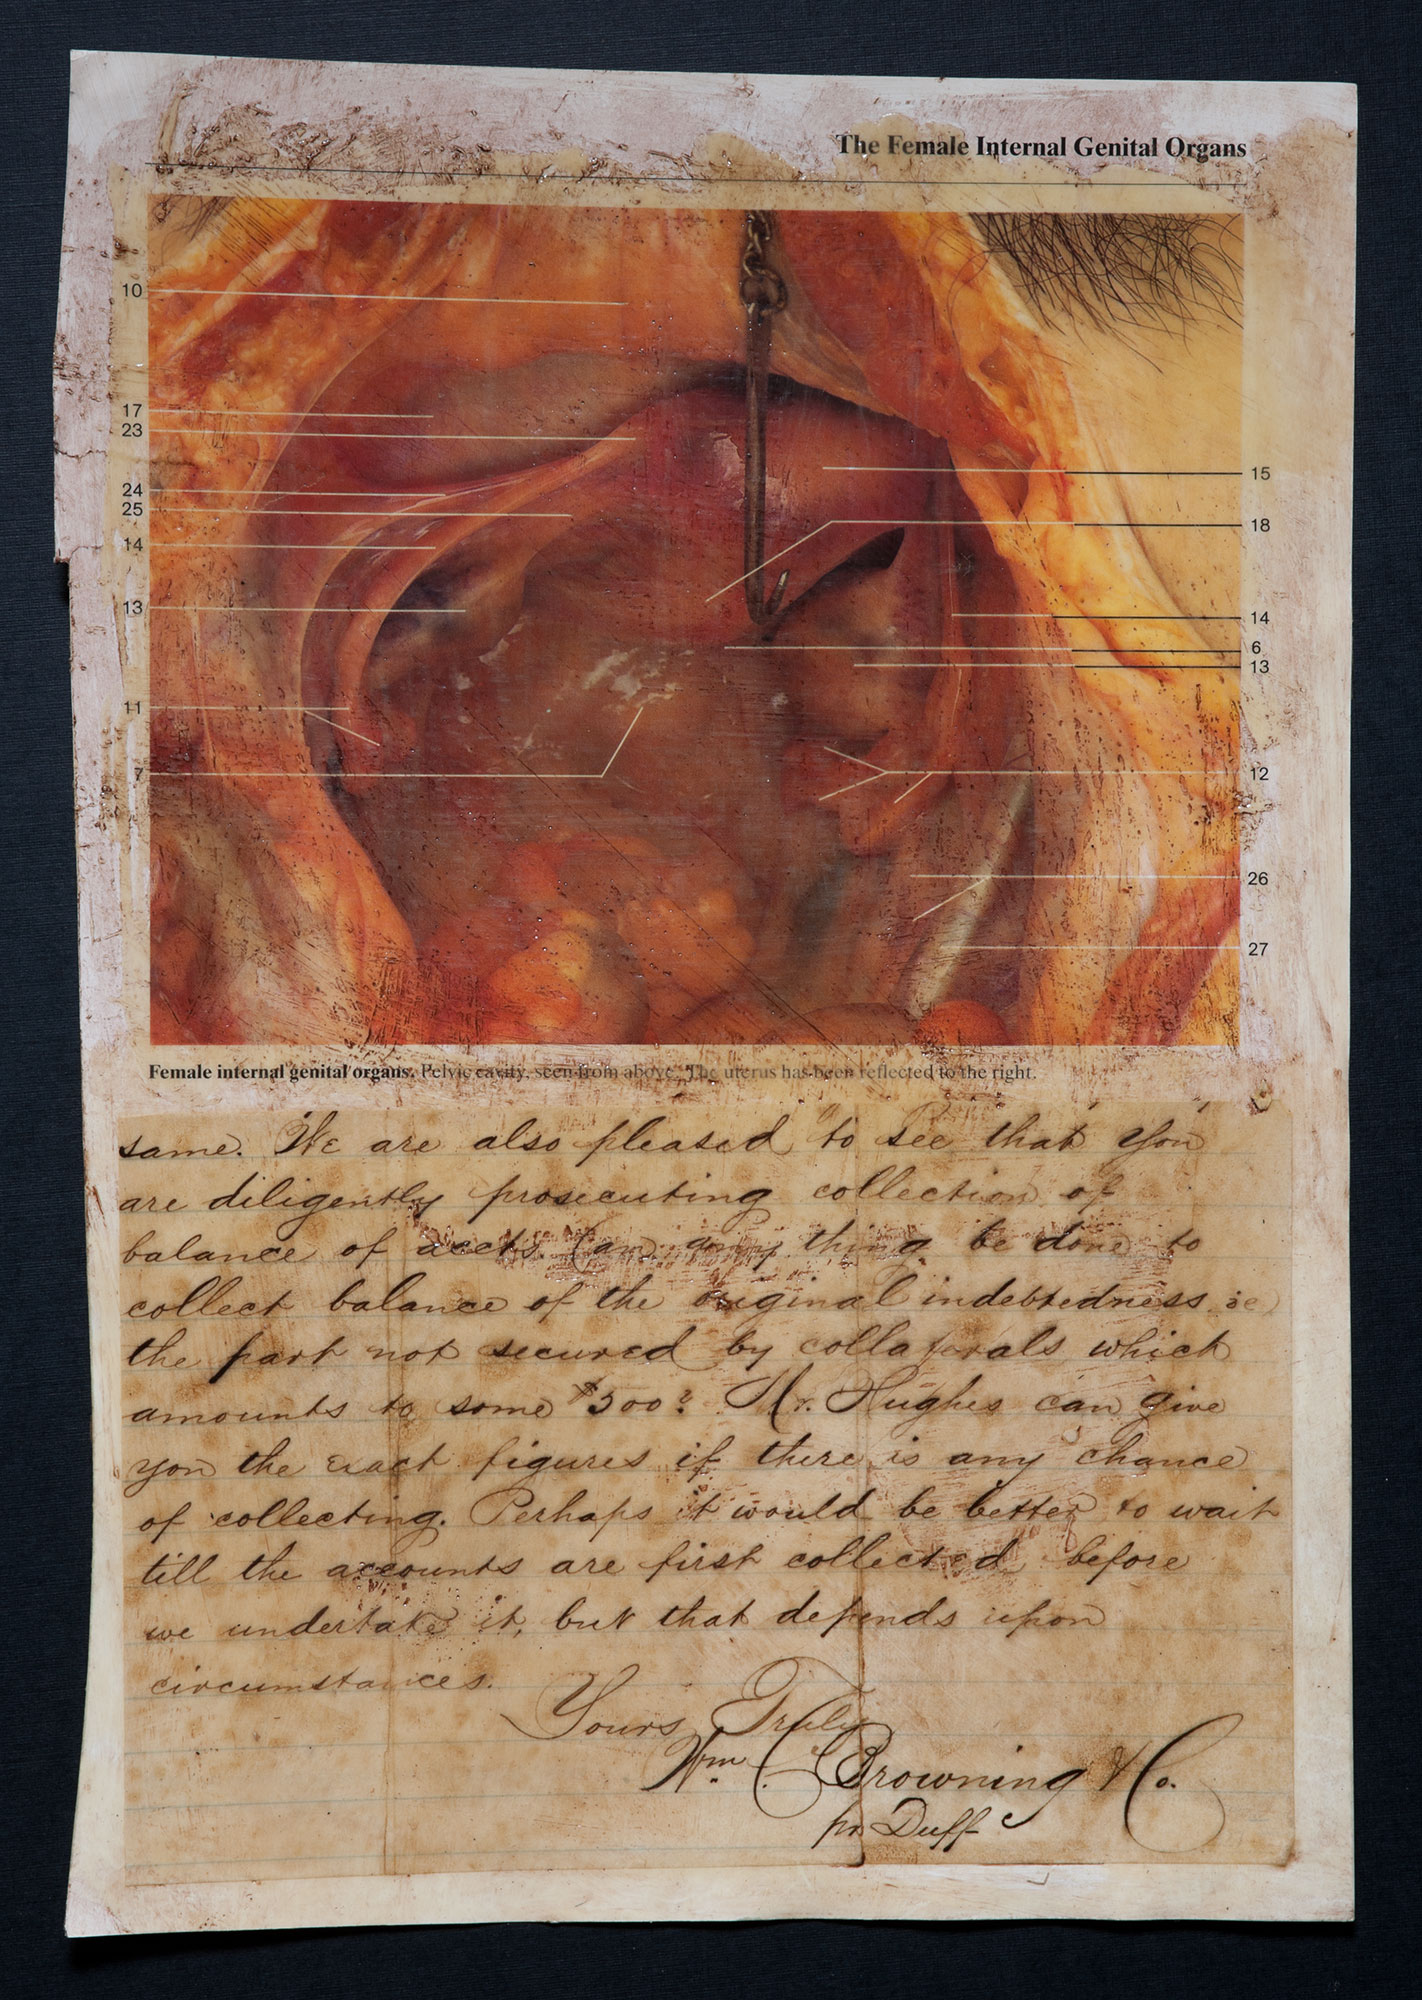 The Female Internal Genital Organs
10
17
23
24
25
14
13
11
7
15
18
14
6
13
12
26
27
Female internal genital organs. Pelvic cavity, seen from above. The uterus has been reflected to the right.
same. We are also pleased to see that you
are diligently prosecuting collection of
balance of accts. Can any thing be done to
collect balance of the original indebtedness ie)
the part not secured by collaterals which
amounts to some $500? Mr. Hughes can give
you the exact figures if there is any chance
of collecting. Perhaps it would be better to wait
till the accounts are first collected before
we undertake it, but that depends upon
circumstances.
Yours Truly
Wm. C. Browning & Co.
pr. Duff